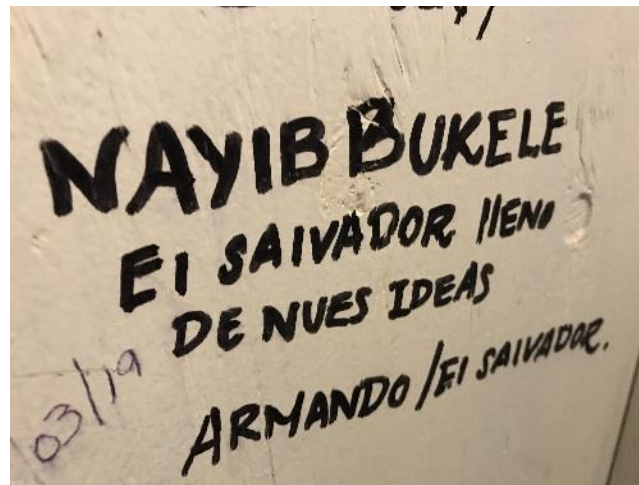 NAYIB BUKELE
El SAlVADOR llENO
DE NUES IDEAS
03/19
ARMANDO/El SAlVADOR.